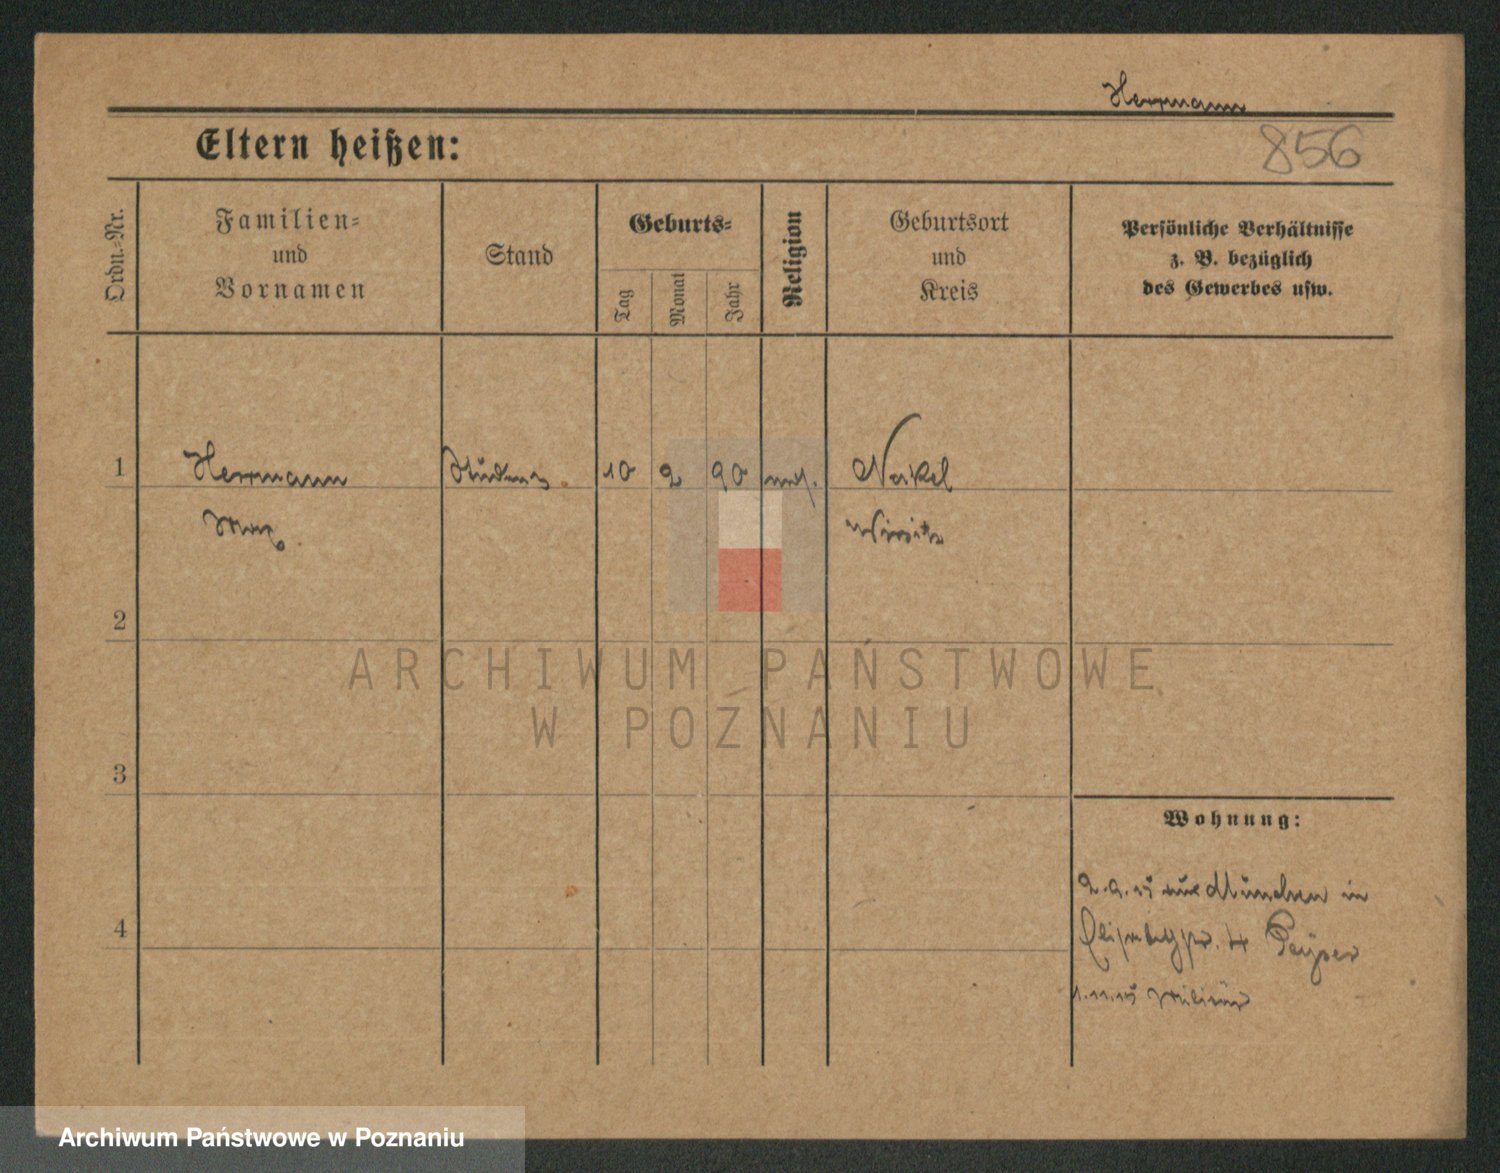 Herrmann
Eltern heißen:
856
Ordn.-Nr.
Familien-
und
Vornamen
Stand
Geburts-
Tag
Monat
Jahr
Religion
Geburtsort
und
Kreis
Persönliche Verhältnisse
z. B. bezüglich
des Gewerbes usw.
1
Herrmann
Student
10
2
90
mos.
Nakel
Max
Wirsitz
2
ARCHIWUM PAŃSTWOWE
W POZNANIU
3
Wohnung:
2.9.15 aus München in
4
Elisabethstr. 4 Peyser
1.11.15 Militär
Archiwum Państwowe w Poznaniu